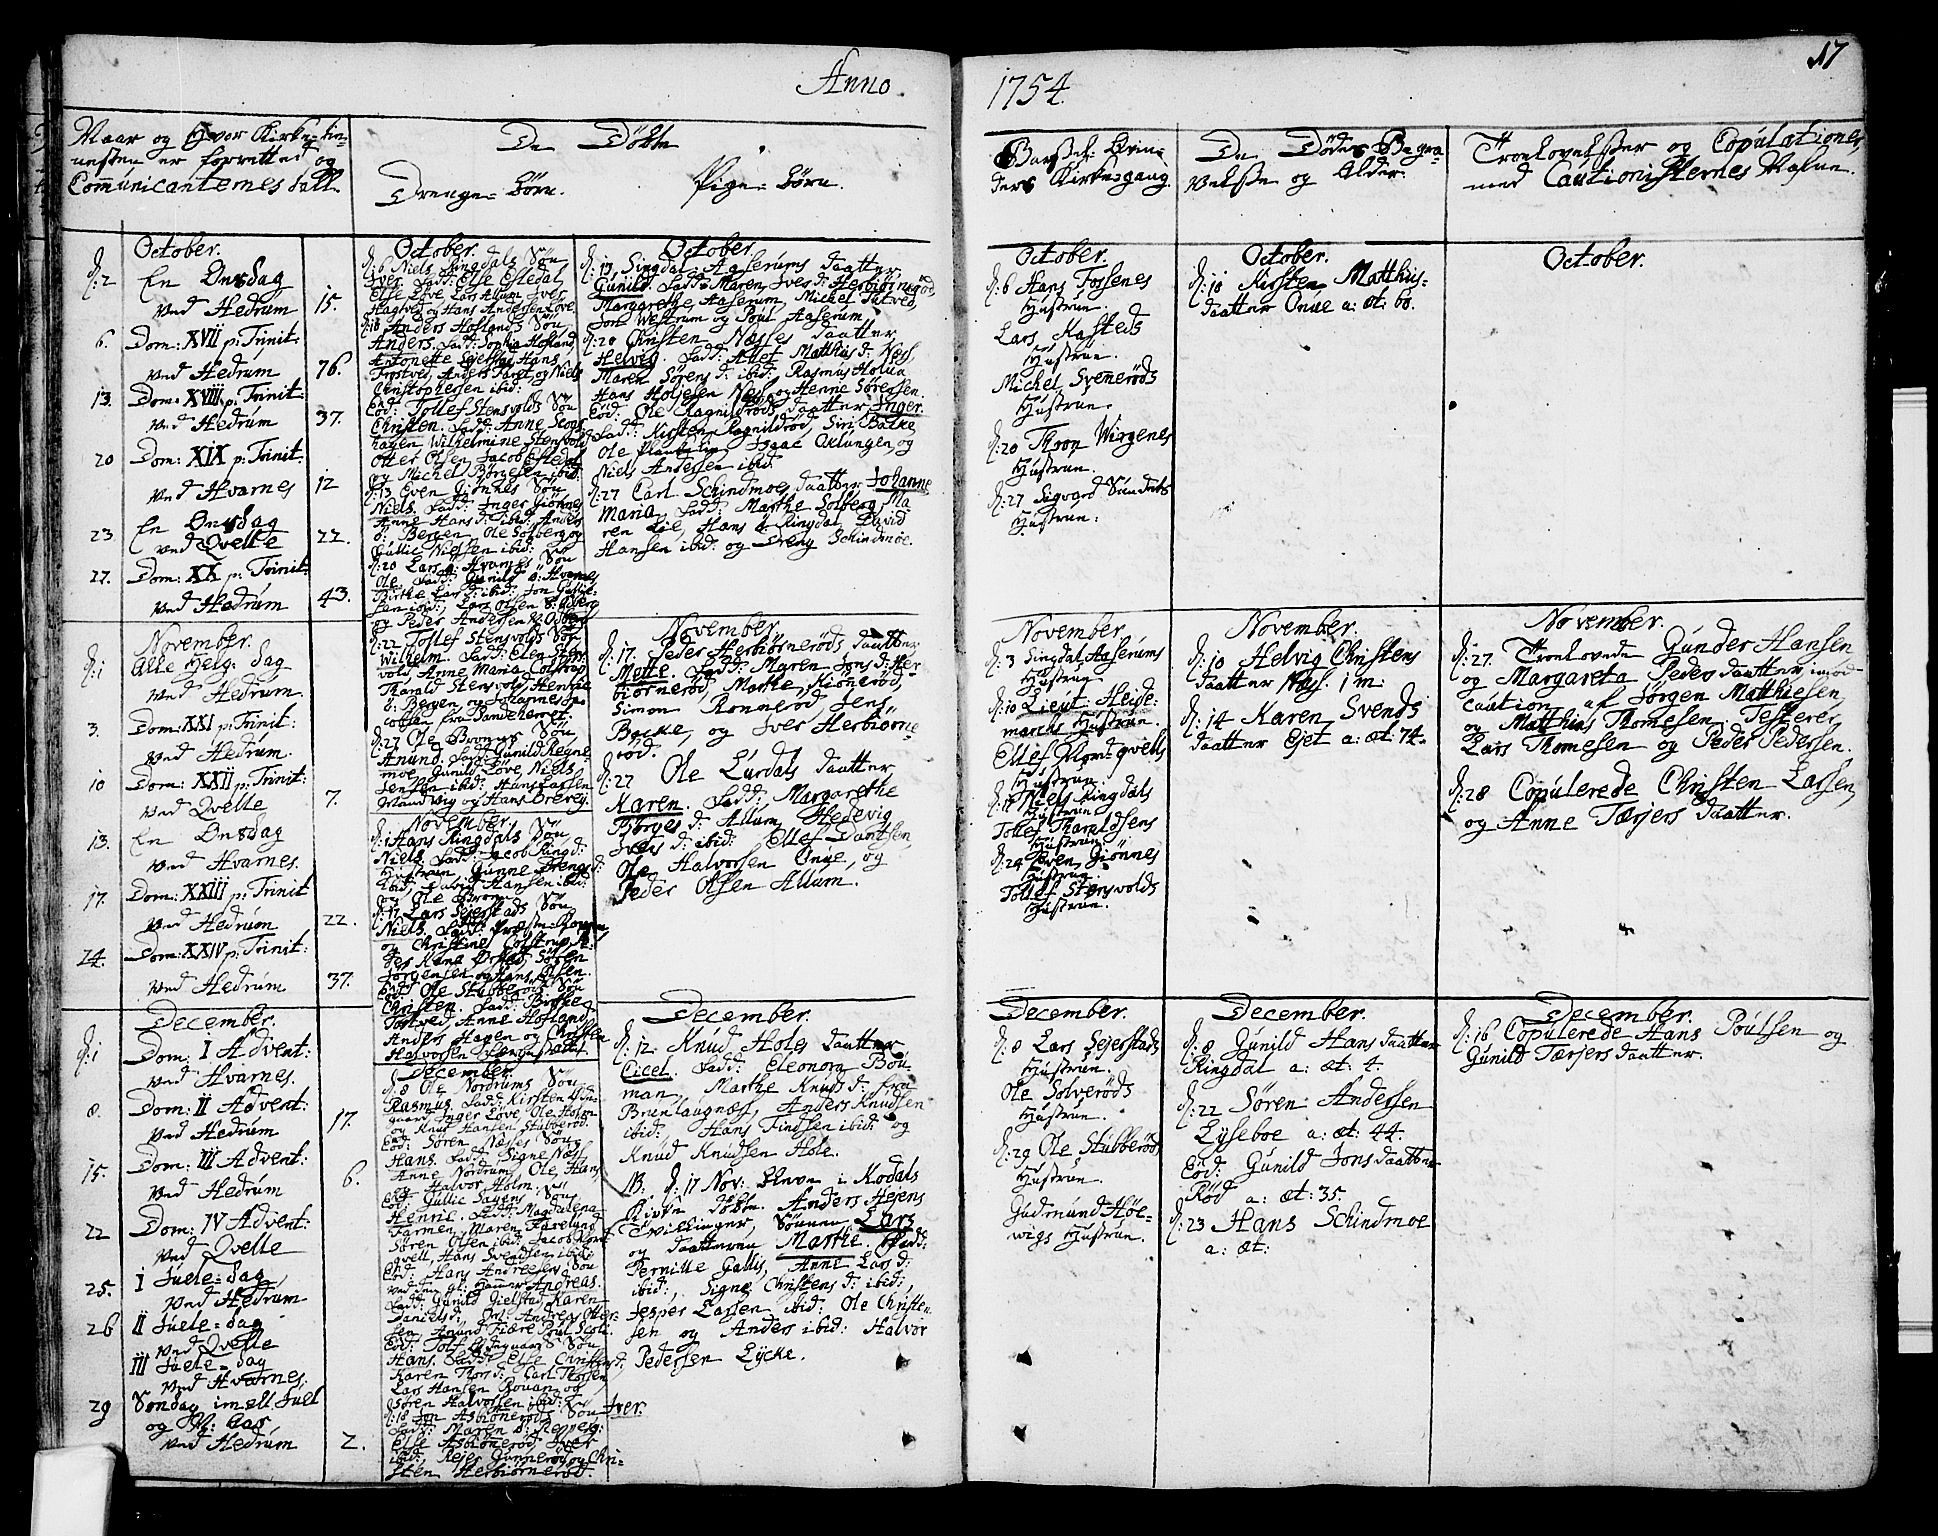 Anno
1754.
17
Naar og Hvor Kirke-tie-
nesten er forrettet og
Communicanternes tall.
De Döbte
Drenge-börn.
Pige-börn.
Barsel-Qvin-
ders Kirkegang.
De Dödes Begra-
velse og Alder.
Trolovelser og Copulationer,
med Cautionisternes Nafne.
October.
d: 2 En Onsdag
ved Hedrum 15.
6. Dom: XVII p: Trinit:
ved Hedrum 76.
13. Dom: XVIII p: Trinit:
ved Hedrum 37.
20 Dom: XIX p: Trinit:
ved Hvarnes 12
23. En Onsdag
ved Qvelle 22.
27. Dom: XX p: Trinit:
ved Hedrum 43.
November.
d: 1 Alle Helg: dag
ved Hedrum.
3. Dom: XXI p: Trinit:
ved Hedrum.
10 Dom: XXII p: Trinit:
ved Qvelle 7.
13. En Onsdag
ved Hvarnes.
17. Dom: XXIII p: Trinit
ved Hedrum 22.
24. Dom: XXIV p: Trinit:
ved Hedrum 37.
December.
d: 1 Dom: I Advent:
ved Hvarnes.
8. Dom: II Advent:
ved Hedrum 17.
15. Dom: III Advent:
ved Hedrum 6.
22 Dom: IV Advent:
ved Qvelle
25. I Juele-dag
ved Hedrum
26 II Juele-dag
ved Qvelle
III Juele-dag
ved Hvarnes.
29 Søndag imell. Juel
og N: aar
ved Hedrum 2.
October.
d: 6 Niels Ringdals Sön
Iver. Fadd: Else Estedal,
Else Löve, Lars Allum, Iver
Hagtvet og Hans Andersen Löve.
d: 10 Anders Hoflands Sön
Anders. Fadd: Sophia Hofland,
Antonette Sejerstad, Hans
Trostved, Anders Faret, og Niels
Christophersen ibid:
Eod: Tollef Stensvolds Sön
Christen. Fadd: Anne Scous
hagen Wilhelmine Stensvold
Otter Olsen, Jacob Estedal
og Michel Börgesen ibid:
d: 13 Even Giönnes Sön
Niels. Fadd: Inger Giönnes
Anne Hans d: ibid: Anders
Ö: Bergen, Ole Solberg og
Gullic Nielsen ibid:
d: 20 Lars Ö: Hvarnes Sön
Ole. Fadd: Gunild Ö: Hvarnes
Birthe Lars d: ibid: Jon Gullic-
sen ibid: Lars Olsen
og Peder Andersen
d: 22 Tollef Stensvolds Sön
Wilhelm. Fadd: Elen Stens
vold, Anne Maria Colstrup
Tharald Stensvold, Henric
Ö: Bergen, og Johannes Ja-
cobsen fra Sandeherret.
d: 27 Ole Bronnes Sön
Anund. Fadd: Gunild Regne
moe, Gunild Löve, Niels
Jensen ibid: Hans Larsen
og Hans Brevig.
November.
d: 1 Hans Ringdals Sön
Niels. Fadd: Jacob Ringd:
Hustrue, Gunne Drengs d:
ibid: Halvor Hansen ibid:
og Ole Bronn
d: 17 Lars Sejerstads Sön
Niels. Fadd: Præste-
og Christine Colstrup, An
ders Kane Örsted, Sören
Jörgensen og Hans Olsen.
Eod: Ole Stubberöds Sön
Christen. Fadd: Birthe
Tostved, Anne Hofland,
Anders Hagen og Christen
Halvorsen
December.
d: 8 Ole Nordrums Sön
Rasmus. Fadd: Kirsten
Inger Löve, Ole Holm
og Knud Hansen Stubberöd.
Eod: Sören Næsses Sön
Hans. Fadd: Signe Næss,
Anne Nordrum, Ole, Hans,
og Halvor Holm.
Eod: Gullic Sagens Sön
Henric. Fadd: Magdalena
Varmen, Maren Farelund
Sören Olsen ibid: Jacob Nort
qvell, Hans Svendsen ibid:
Eod: Hans Andreesens Sön
ved Andreas.
Fadd: Gunild Gielstad, Karen
Daniels d: Andreas Otter-
sen, Anund Fiære Poul Scoli.
Eod: Tolf Sön
Hans. Fadd: Else Christens d:
Karen Thors d: Carl Thorsen,
Lars Hansen Bonan og
Sören Halvorsen ibid:
d: 18 Jon Asbiönröds Sön Iver.
Fadd: Maren
Else Asbiönröd, Iver
ibid: Rejer Gunneröd og Chri-
sten Herbiörneröd.
October.
d: 13 Singdal Aaserums daatter
Gunild. Fadd: Maren Ivers d: Herbiörnröd,
Margarethe Aaserum, Michel Tutved,
Jon Westrum og Poul Aaserum.
d: 20 Christen Næsses daatter
Helvig. Fadd: Allet Matthis d: Næss.
Maren Sörens d: ibid: Rasmus Holua
Hans Holjesen Næss, og Henric Sörensen.
Eod: Ole Ragnildröds daatter Inger.
Fadd: Kirsten Ragnildröd, Siri Bakke,
Ole Isaac Oklungen, og
Niels Andersen ibid.
d: 27 Carl Schindmoes daatter Johanne
Maria. Fadd: Marthe Solberg, Ma
ren Lie, Hans Ringdal, David
Hansen ibid: og Dreng Schindmoe.
November.
d: 17. Peder Herbiörneröds daatter
Mette. Fadd: Maren Jons d: Her
biörneröd, Marthe Kiöneröd,
Simon Rönneröd Jens
Backe, og Iver Herbiörne
röd.
d: 27 Ole Lurdals daatter
Karen. Fadd: Margarethe
Börges d: Allum, Hedevig
Ivers d: ibid: Ellef Davidsen,
Ole Halvorsen Onue, og
Peder Olsen Allum.
December.
d: 12 Knud Holes daatter
Cicel. Fadd: Eleonora Böu-
man, Marthe Knuds d: fra
Brunlaugnæs, Anders Knudsen
ibid: Hans Findsen ibid: og
Knud Knudsen Hole.
NB. d: 17 Nov: bleve i Kodals
Kirke döbte Anders Hejens
Tvillinger, Sönnen Lars
og daatteren Marthe. Fadd:
Pernille Gallis, Anne Lars d:
ibid:, Signe Christens d: ibid:,
Jesper Larsen ibid: Ole Christen
sen og Anders ibid: Halvor
Pedersen Lycke.
October.
d: 6 Hans Fossenes
Hustrue.
Lars Kasteds
Hustrue.
Michel Sveneröds
Hustrue.
d: 20 Thron Wirgenes
Hustrue.
d: 27 Sigvard Sundets
Hustrue.
November.
d: 3 Singdal Aaserums
Hustrue
d: 10 Lieut: Heide-
marchs Hustrue.
Ellef Nortqvells
Hustrue.
d: 17 Niels Ringdals
Hustrue
Tollef Tharaldsens
Hustrue
d: 24 Even Giönnes
Hustrue.
Tollef Stensvolds
Hustrue.
December.
d: 8 Lars Sejerstads
Hustrue.
Ole Solveröds
Hustrue.
d: 29 Ole Stubberöds
Hustrue.
Gudmund Höe-
wigs Hustrue.
October.
d: 10 Kirsten Matthis-
daatter Onue a: æt: 60.
November.
d: 10 Helvig Christens
daatter Næss. 1 m:
d: 14 Karen Svends
daatter Ejet a: æt: 74.
December.
d: 8 Gunild Hans daatter
Ringdal a: æt: 4.
d: 22 Sören Andersen
Lyseboe a: æt: 44.
Eod: Gunild Jons daatter
Röd a: æt: 35.
d: 23 Hans Schindmoe
a: æt:
October.
November.
d: 27. Trolovede Gunder Hansen
og Margareta Peders daatter, imod
caution af Jörgen Matthiesen,
og Matthis Thomesen. Testerer
Lars Thomesen og Peder Pedersen.
d: 28 Copulerede Christen Larsen,
og Anne Tærjers daatter.
December.
d: 16 Copulerede Hans Poulsen og
Gunild Tærjers daatter.